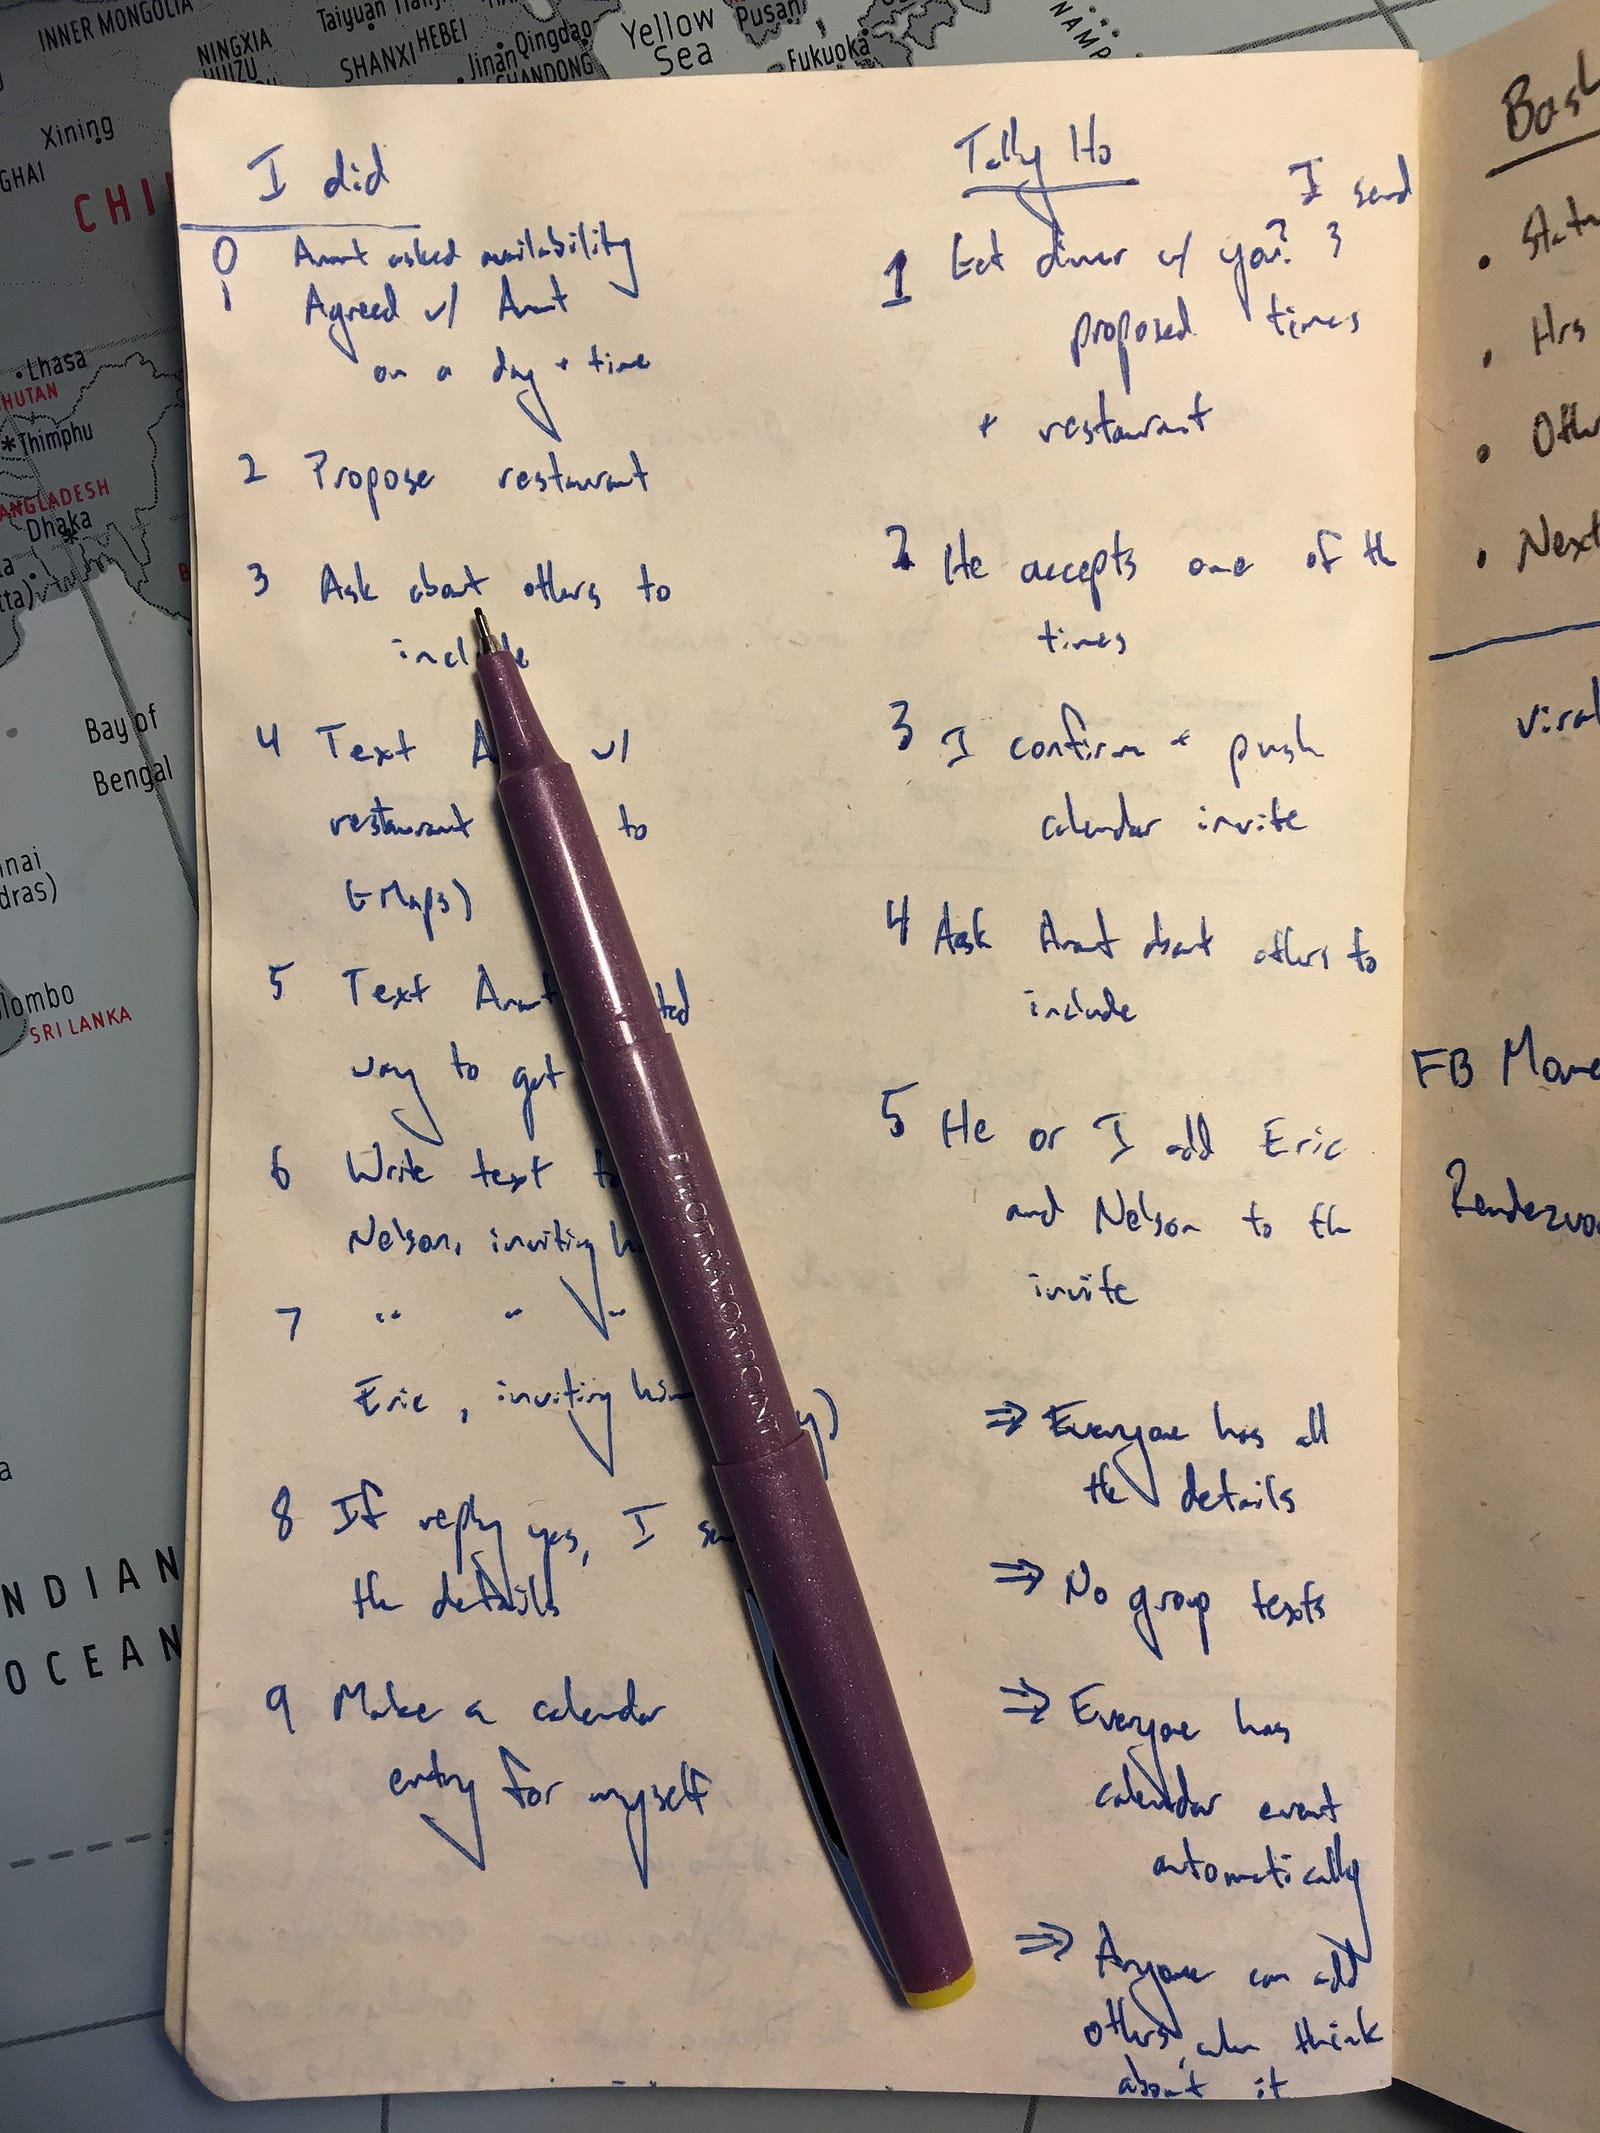 INNER MONGOLIA
NINGXIA
HUIZU
Taiyuan
SHANXI
HEBEI
Jinan
Qingdao
SHANDONG
Yellow
Sea
Pusan
Fukuoka
NAMP
Xining
GHAI
CHI
Lhasa
HUTAN
Thimphu
ANGLADESH
Dhaka
ta)
Bay of
Bengal
nai
dras)
lombo
SRI LANKA
NDIAN
OCEAN
I did
0 Anant asked availability
1 Agreed w/ Anant
on a day + time
2 Propose restaurant
3 Ask about others to
include
4 Text A w/
restaurant to
GMaps)
5 Text Anant ted
way to get
6 Write text to
Nelson, inviting h
7 " " "
Eric, inviting him y)
8 If reply yes, I se
the details
9 Make a calendar
entry for myself
PILOT RAZOR POINT
Tally Ho
I send
1 Eat dinner w/ you? 3
proposed times
+ restaurant
2 He accepts one of the
times
3 I confirm + push
calendar invite
4 Ask Anant about others to
include
5 He or I add Eric
and Nelson to the
invite
⇒ Everyone has all
the details
⇒ No group texts
⇒ Everyone has
calendar event
automatically
⇒ Anyone can add
others, when think
about it
Bas
• Stat
• Hrs
• Oth
• Next
viral
FB Mome
Rendezvo